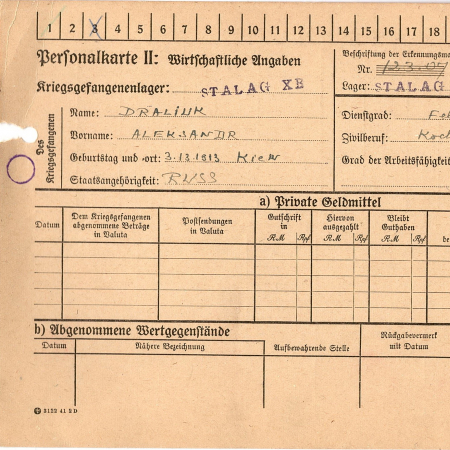 1 2 3 4 5 6 7 8 9 10 11 12 13 14 15 16 17 18
Personalkarte II: Wirtschaftliche Angaben
Kriegsgefangenenlager: STALAG XB
Beschriftung der Erkennungsma
Nr.
Lager: STALAG
Des Kriegsgefangenen
Name: DRALIUK
Vorname: ALEKSANDR
Geburtstag und -ort: 3.13.1913 Kiew
Staatsangehörigkeit: RUSS
Dienstgrad:
Zivilberuf: Koch
Grad der Arbeitsfähigkeit
a) Private Geldmittel
Datum
Dem Kriegsgefangenen abgenommene Beträge in Valuta
Postsendungen in Valuta
Gutschrift in
RM Rpf
Hiervon ausgezahlt
RM Rpf
Bleibt Guthaben
RM Rpf
be
b) Abgenommene Wertgegenstände
Datum
Nähere Bezeichnung
Aufbewahrende Stelle
Rückgabevermerk mit Datum
3133 41 2 D